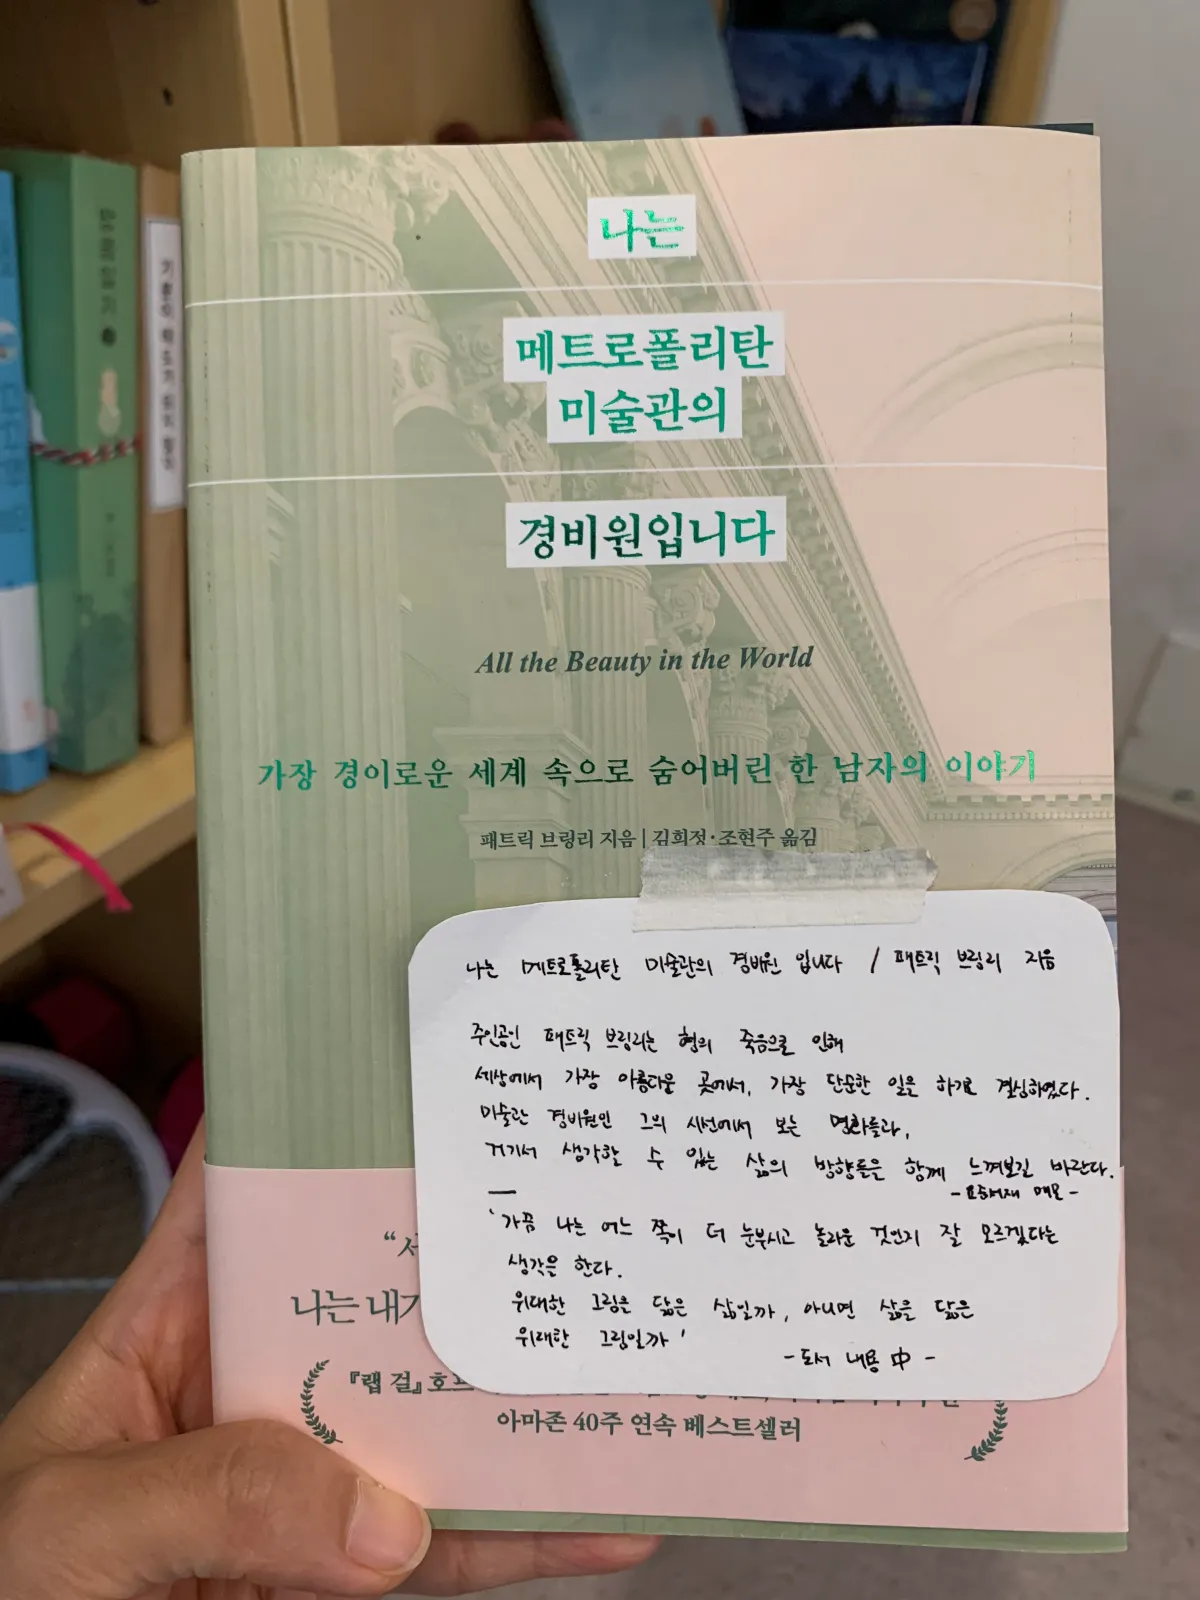 나는
메트로폴리탄
미술관의
경비원입니다
All the Beauty in the World
가장 경이로운 세계 속으로 숨어버린 한 남자의 이야기
패트릭 브링리 지음 | 김희정·조현주 옮김
나는 메트로폴리탄 미술관의 경비원 입니다 / 패트릭 브링리 지음
주인공인 패트릭 브링리는 형의 죽음으로 인해
세상에서 가장 아름다운 곳에서, 가장 단순한 일을 하기로 결심하였다.
미술관 경비원인 그의 시선에서 보는 명화들과,
거기서 생각할 수 있는 삶의 방향들을 함께 느껴보길 바란다.
메모 -
'가끔 나는 어느 쪽이 더 눈부시고 놀라운 것인지 잘 모르겠다는
생각을 한다.
위대한 그림을 닮은 삶일까, 아니면 삶을 닮은
위대한 그림일까'
- 도서 내용 中 -
나는 내
『랩 걸』
아마존 40주 연속 베스트셀러